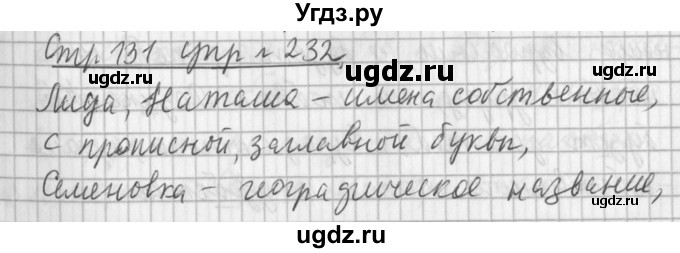 Угдз.ру
Стр. 131 упр № 232
ugdz.ru ugdz.ru
Лида, Наташа – имена собственные,
ugdz.ru
с прописной, заглавной буквы,
ugdz.ru ugdz.ru
Семеновка – географическое название,
ugdz.ru